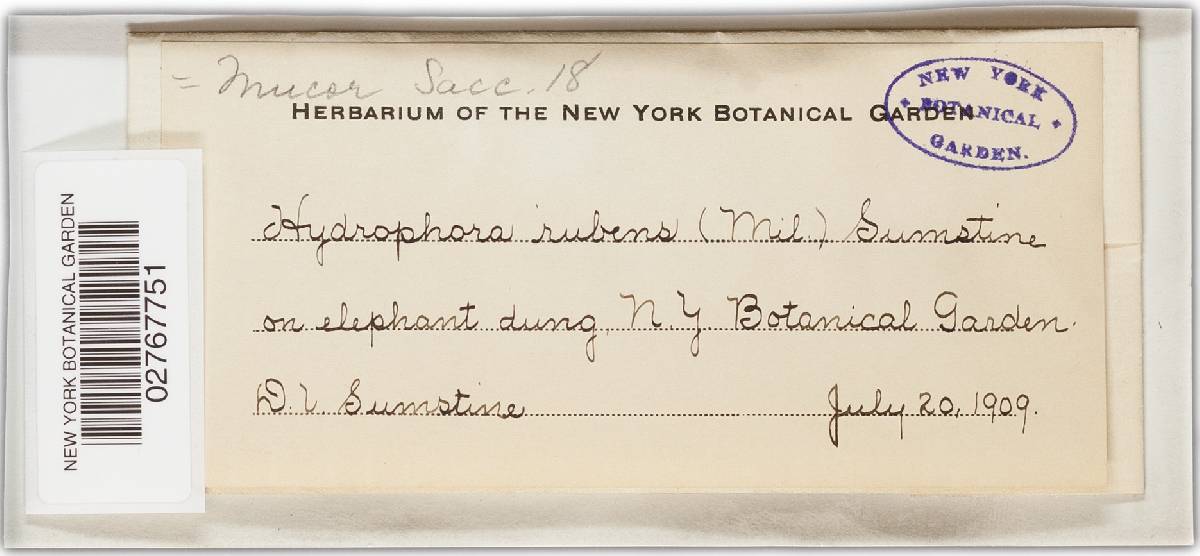 = Mucor Sacc. 18
HERBARIUM OF THE NEW YORK BOTANICAL GARDEN
NEW YORK
BOTANICAL
GARDEN.
Hydrophora rubens (Mil.) Sumstine
on elephant dung, N.Y Botanical Garden.
D.R Sumstine
July 20, 1909.
NEW YORK BOTANICAL GARDEN
02767751